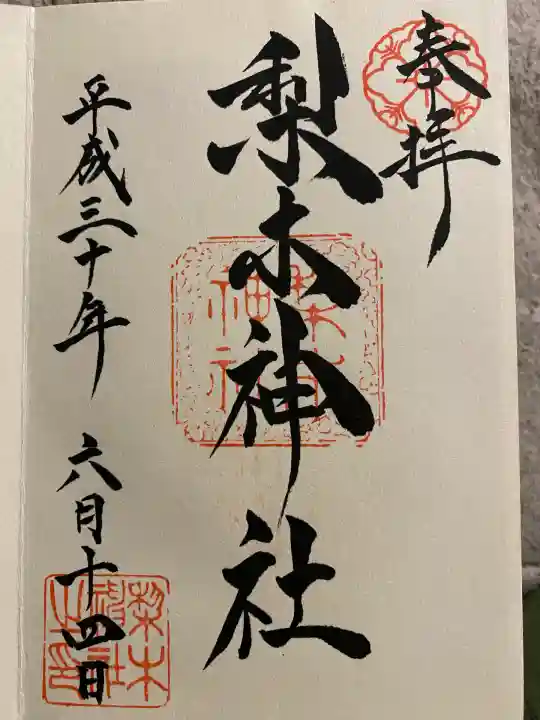 奉拝
梨木神社
平成三十年 六月十四日
梨木
神社
梨木
神社
之印